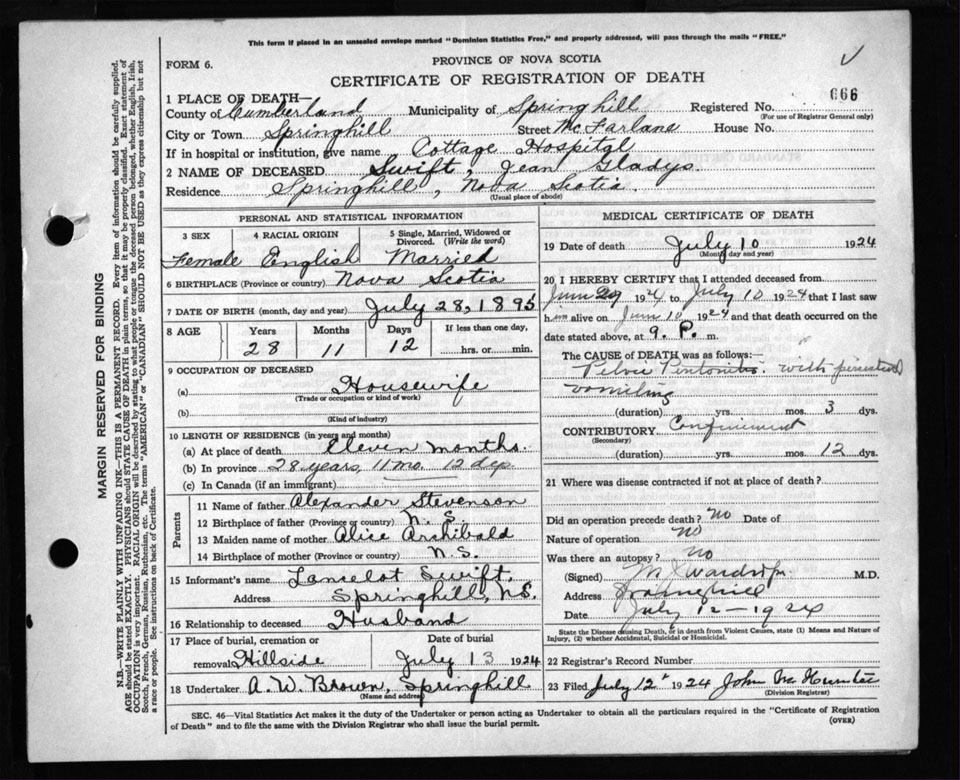 This form if placed in an unsealed envelope marked "Dominion Statistics Free," and properly addressed, will pass through the mails "FREE."
FORM 6.
PROVINCE OF NOVA SCOTIA
CERTIFICATE OF REGISTRATION OF DEATH
1 PLACE OF DEATH—
County of Cumberland Municipality of Springhill Registered No. 666
(For use of Registrar General only)
City or Town Springhill Street McFarlane House No.
If in hospital or institution, give name Cottage Hospital
2 NAME OF DECEASED Swift, Jean Gladys.
Residence Springhill, Nova Scotia.
(Usual place of abode)
PERSONAL AND STATISTICAL INFORMATION
3 SEX 4 RACIAL ORIGIN 5 Single, Married, Widowed or Divorced. (Write the word)
Female English Married
6 BIRTHPLACE (Province or country) Nova Scotia
7 DATE OF BIRTH (month, day and year) July 28, 1895
8 AGE Years Months Days If less than one day,
28 11 12 hrs. or min.
9 OCCUPATION OF DECEASED
(a) Housewife
(Trade or occupation or kind of work)
(b)
(Kind of industry)
10 LENGTH OF RESIDENCE (in years and months)
(a) At place of death Eleven months.
(b) In province 28 years, 11 mo. 12 dys
(c) In Canada (if an immigrant)
Parents
11 Name of father Alexander Stevenson
12 Birthplace of father (Province or country) N. S.
13 Maiden name of mother Alice Archibald
14 Birthplace of mother (Province or country) N.S.
15 Informant's name Lancelot Swift,
Address Springhill, N.S.
16 Relationship to deceased Husband
17 Place of burial, cremation or removal Hillside Date of burial July 13 1924
18 Undertaker A. W. Brown, Springhill
(Name and address)
MEDICAL CERTIFICATE OF DEATH
19 Date of death July 10 1924
(Month, day and year)
20 I HEREBY CERTIFY that I attended deceased from
June 29 1924 to July 10 1924 that I last saw
h alive on June 10 1924 and that death occurred on
date stated above, at 9. P. m.
The CAUSE OF DEATH was as follows:
Pelvic Peritonitis. with persistent
vomiting
(duration) yrs. mos. 3 dys.
CONTRIBUTORY Confinement
(Secondary)
(duration) yrs. mos. 12 dys.
21 Where was disease contracted if not at place of death?
Did an operation precede death? no Date of
Nature of operation no
Was there an autopsy? no
(Signed) Wardrop M.D.
Address Springhill
Date July 12—1924
State the Disease causing Death, or in death from Violent Causes, state (1) Means and Nature of Injury, (2) whether Accidental, Suicidal or Homicidal.
22 Registrar's Record Number
23 Filed July 12 1924 John Hunter
(Division Registrar)
SEC. 46—Vital Statistics Act makes it the duty of the Undertaker or person acting as Undertaker to obtain all the particulars required in the "Certificate of Registration
of Death" and to file the same with the Division Registrar who shall issue the burial permit.
(OVER)
MARGIN RESERVED FOR BINDING
N.B.—WRITE PLAINLY WITH UNFADING INK—THIS IS A PERMANENT RECORD. Every item of information should be carefully supplied.
AGE should be stated EXACTLY. PHYSICIANS should STATE CAUSE OF DEATH in plain terms, so that it may be properly classified. Exact statement of
OCCUPATION is very important. RACIAL ORIGIN will be described by stating to what people or tongue the deceased person belonged, whether English, Irish,
Scotch, French, German, Russian, Ruthenian, etc. The terms "AMERICAN" or "CANADIAN" SHOULD NOT BE USED as they express citizenship but not
a race or people. See instructions on back of Certificate.